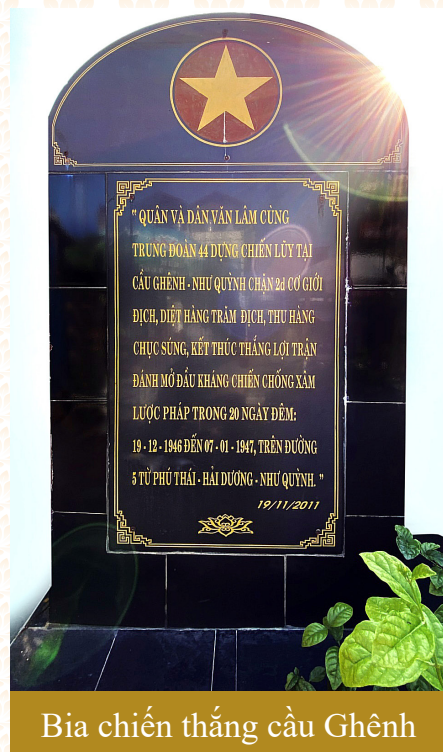 " QUÂN VÀ DÂN VĂN LÂM CÙNG
TRUNG ĐOÀN 44 DỰNG CHIẾN LŨY TẠI
CẦU GHÊNH - NHƯ QUỲNH CHẶN 2d CƠ GIỚI
ĐỊCH, DIỆT HÀNG TRĂM ĐỊCH, THU HÀNG
CHỤC SÚNG, KẾT THÚC THẮNG LỢI TRẬN
ĐÁNH MỞ ĐẦU KHÁNG CHIẾN CHỐNG XÂM
LƯỢC PHÁP TRONG 20 NGÀY ĐÊM:
19 - 12 - 1946 ĐẾN 07 - 01 - 1947, TRÊN ĐƯỜNG
5 TỪ PHÚ THÁI - HẢI DƯƠNG - NHƯ QUỲNH. "
19/11/2011
Bia chiến thắng cầu Ghênh